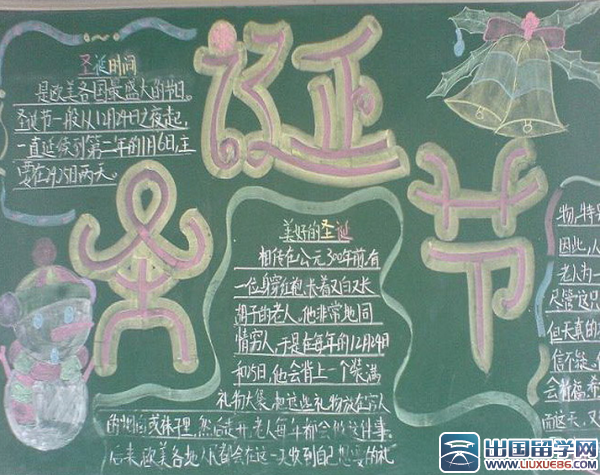 圣诞节
圣诞时间
是欧美各国最盛大的节日。
圣诞节一般从12月24日之夜起,
一直延续到第二年的1月6日,主
要在24、25日两天。
美好的圣诞
相传在公元300年前,有
一位身穿红袍,长着又白又长
胡子的老人,他非常地同
情穷人,于是在每年的12月24日
和25日,他会背上一个装满
礼物大袋,把这些礼物放在穷人
的烟囱或袜子里,然后走开,老人每年都会做这件事,
后来,欧美各地人民都会在这一天收到自己想要的礼
物,特别
因此,人
老人为一
尽管这只
但天真的
信不疑,
会祈福
而这天,又
出国留学网
www.liuxue86.com